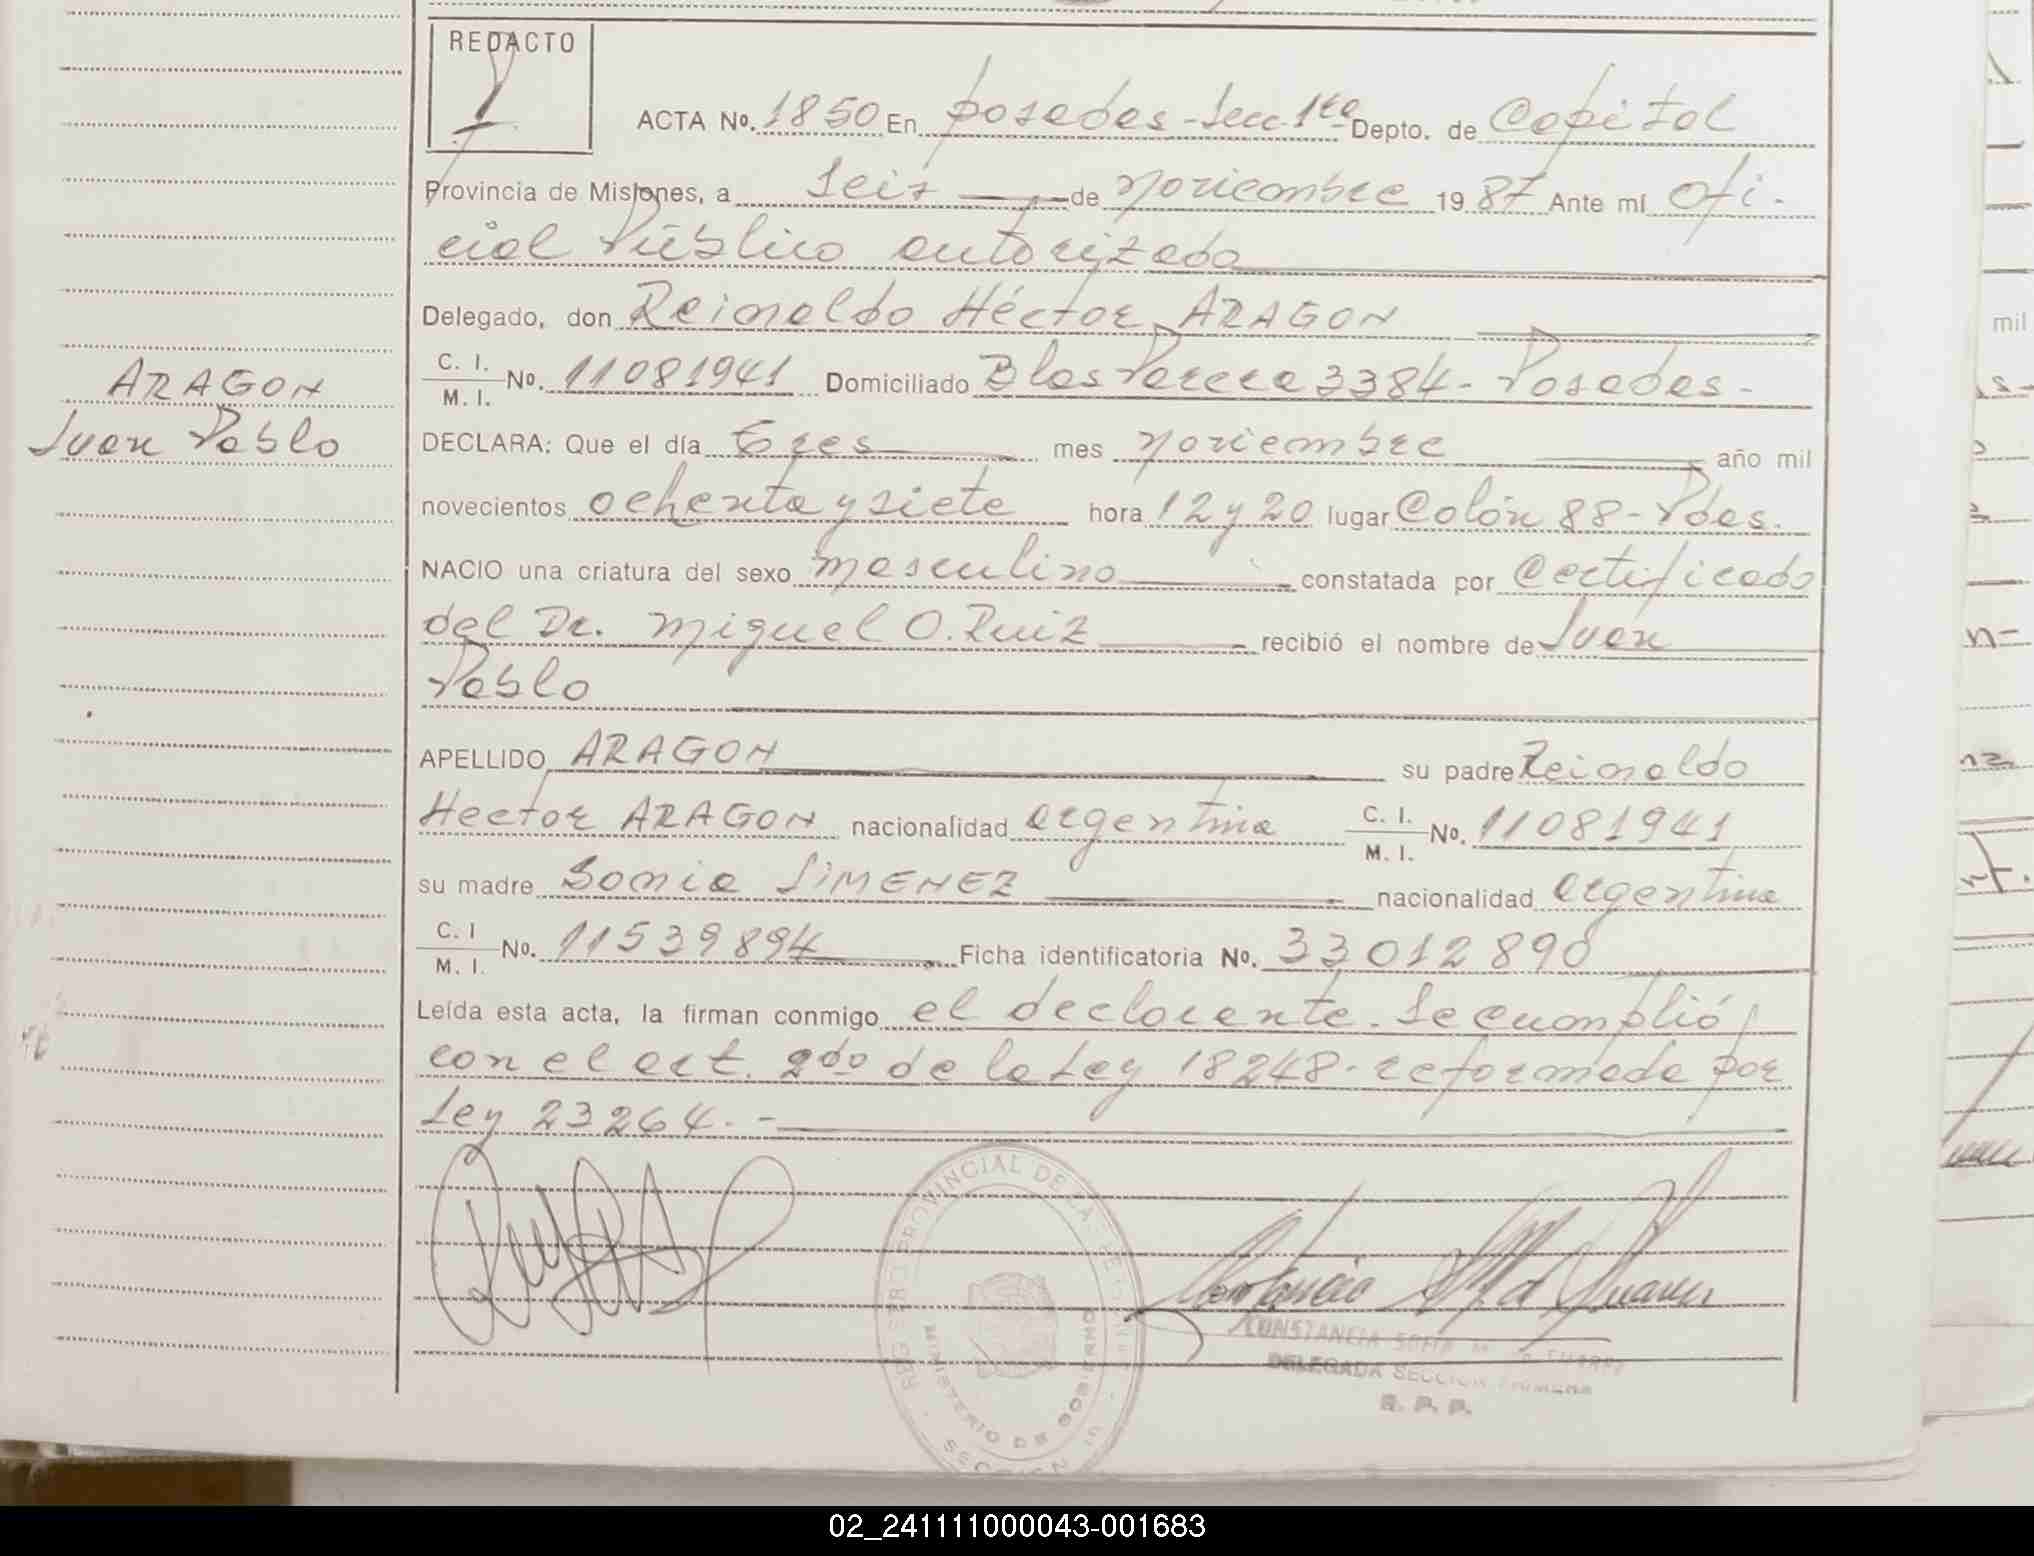 REDACTO
ACTA No. 1850 En Posadas - Secc. 1ra Depto. de Capital
Provincia de Misiones, a seis de noviembre 1987 Ante mí ofi-
cial Público autorizado
Delegado, don Reinaldo Héctor ARAGON
C. I.
M. I. No. 11081941 Domiciliado Blas Parera 3384 - Posadas -
ARAGON
Juan Pablo
DECLARA: Que el día tres mes noviembre año mil
novecientos ochenta y siete hora 12 y 20 lugar Colón 88 - Pdas.
NACIO una criatura del sexo masculino constatada por Certificado
del Dr. Miguel O. Ruiz recibió el nombre de Juan
Pablo
APELLIDO ARAGON su padre Reinaldo
Hector ARAGON nacionalidad argentina C. I. M. I. No. 11081941
su madre Sonia JIMENEZ nacionalidad argentina
C. I M. I. No. 11539894 Ficha identificatoria No. 33012890
Leída esta acta, la firman conmigo el declarante. Se cumplió
con el art. 2do de la Ley 18248 - reformada por
Ley 23264. -
REGISTRO PROVINCIAL DE LAS PERSONAS
MINISTERIO DE GOBIERNO
SECCION
CONSTANCIA SOFIA M. DE SUAREZ
DELEGADA SECCION PRIMERA
R. P. P.
mil
02_241111000043-001683